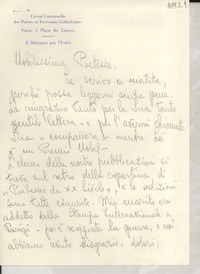 Union Universelle
des Poètes et Ecrivains Catholiques
Paris. 2 Place du Louvre
Il Delegato per l'Italia
Nobilissima Poetessa,
Le scrivo a matita,
perché possa leggermi senza pena.
La ringrazio tanto per la Sua tanto
gentile lettera - e per l'avermi chiamata
Sua "compañera" - mentre Lei
è un Premio Nobel -
L'elenco delle nostre pubblicazioni si
trova sul retro della copertina di
"Poetesse del XX Secolo", e le edizioni
son tutte esaurite. Mio marito era
addetto della Stampa Internazionale a
Parigi - poi è venuta la guerra, e noi
abbiamo avuto disgrazie, dolori,